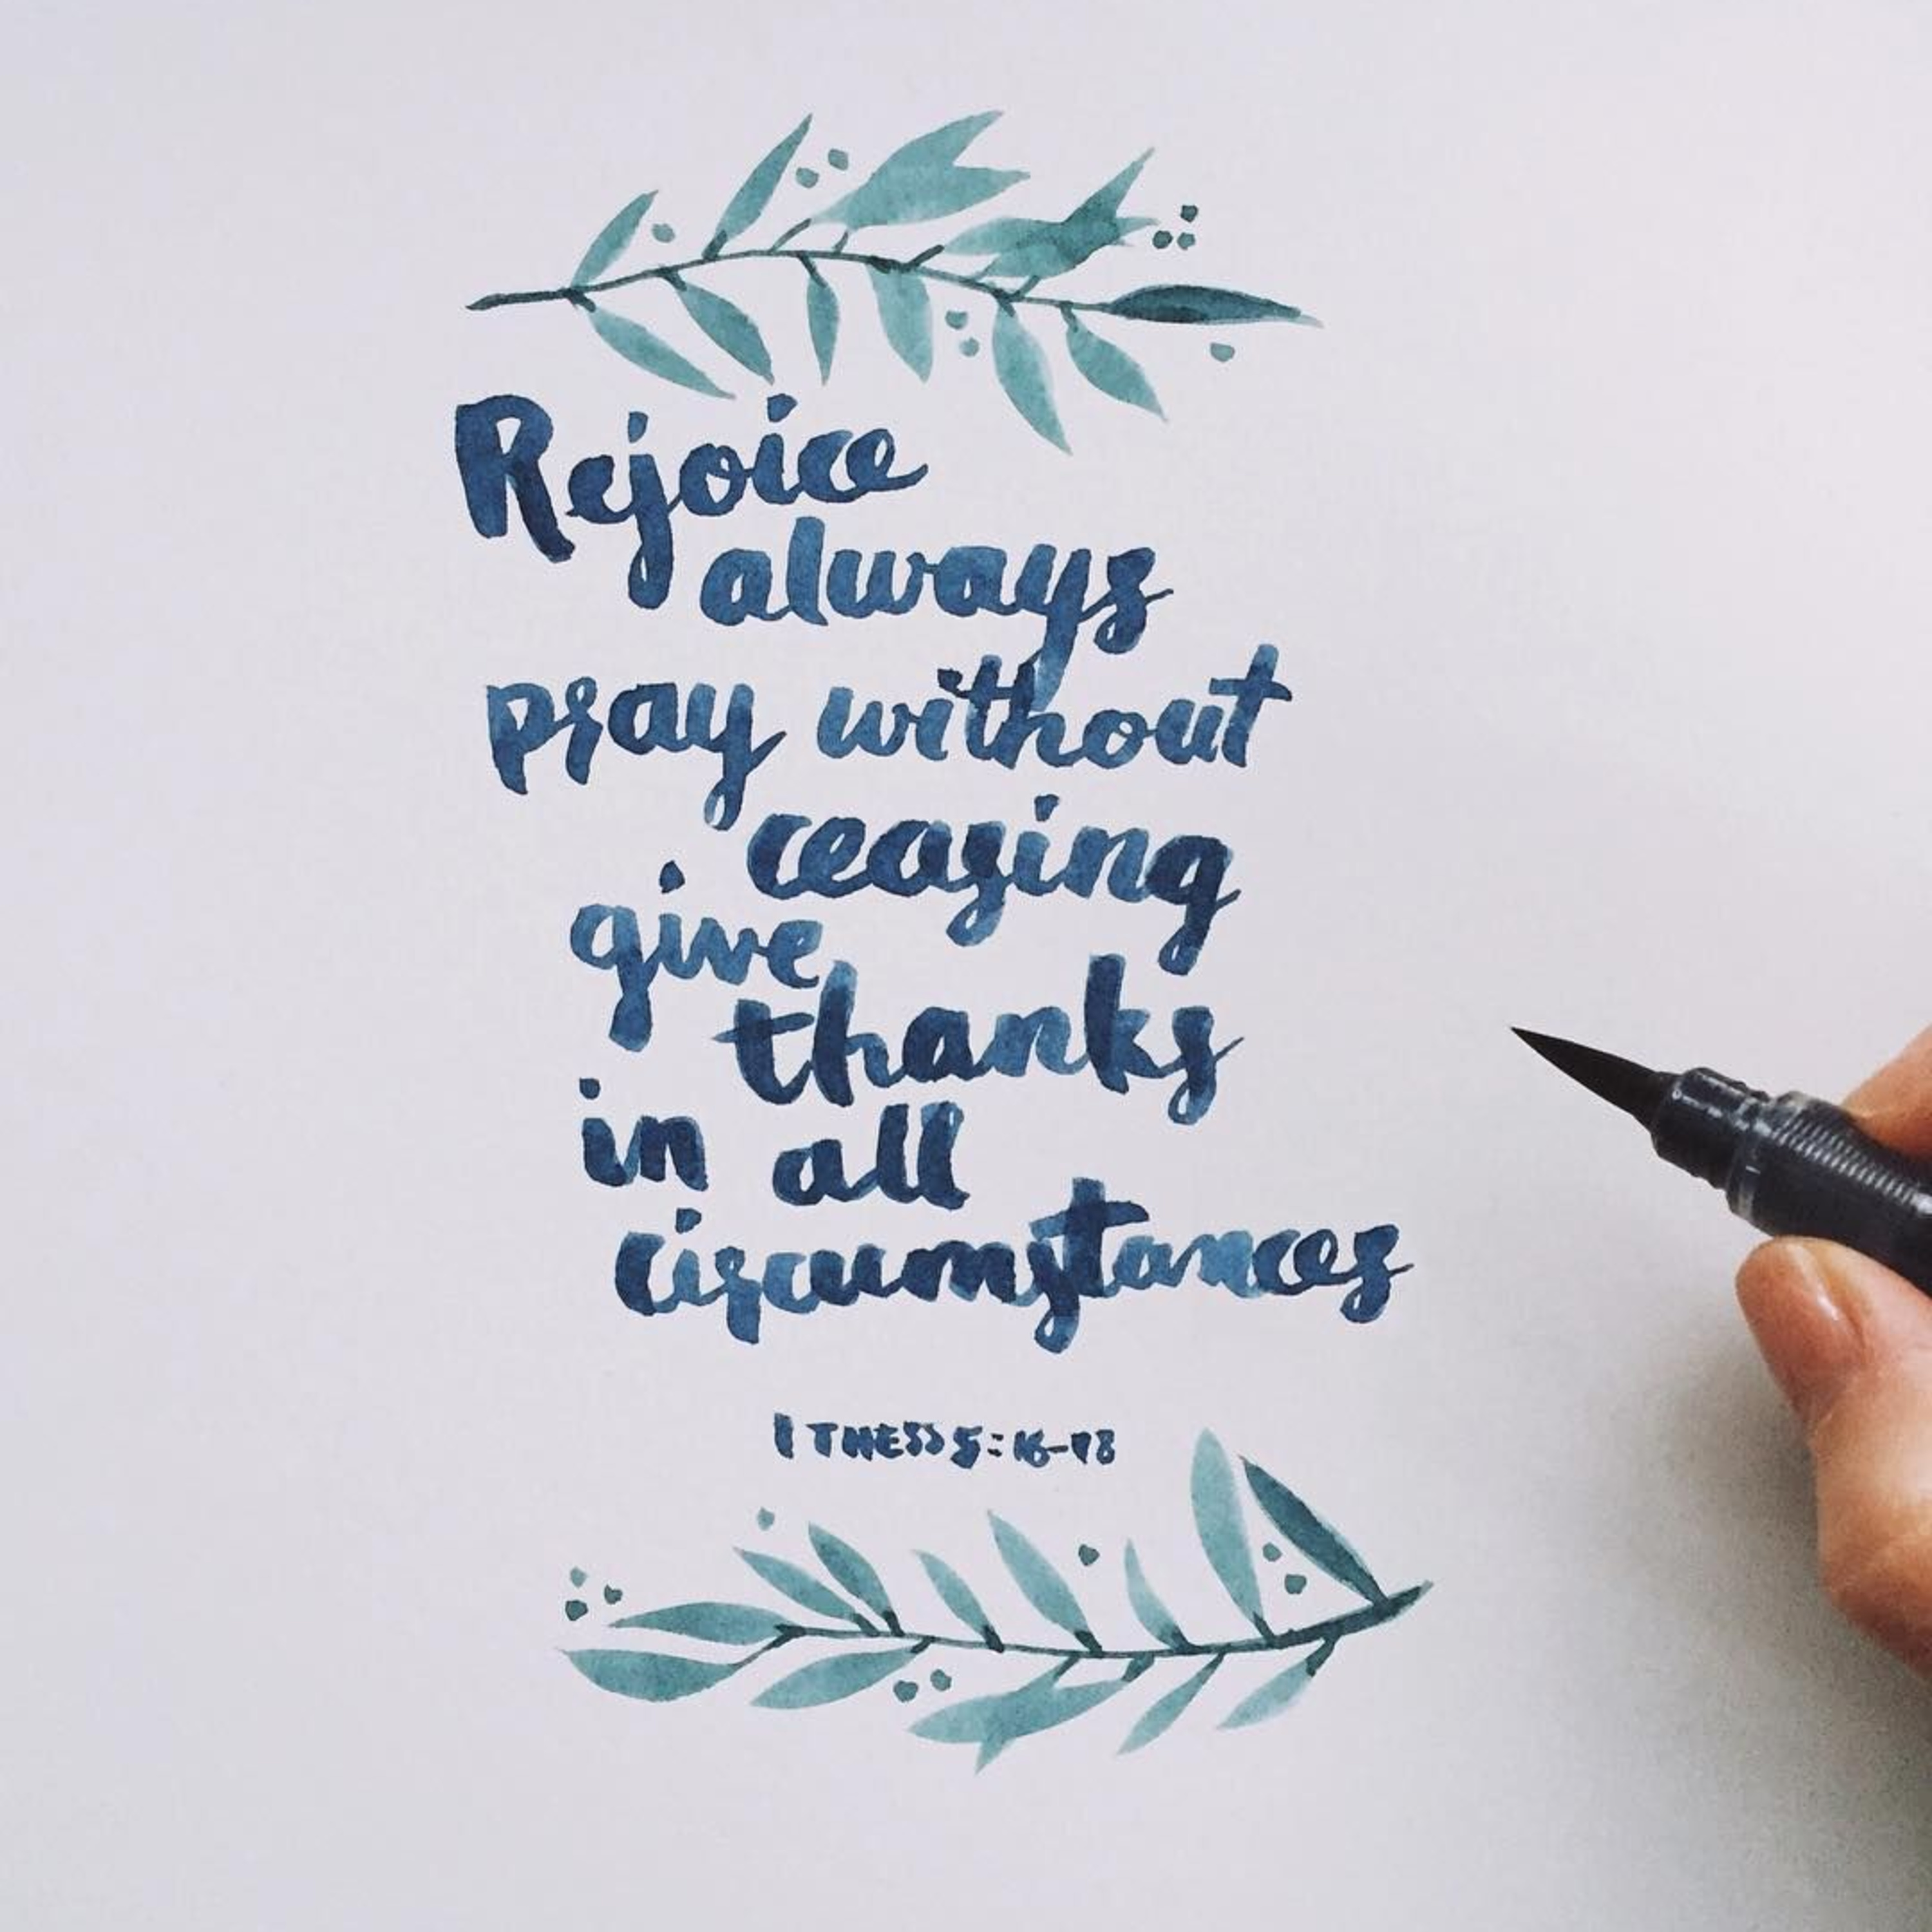 Rejoice
always
pray without
ceasing
give
thanks
in all
circumstances
1 THESS 5:16-18